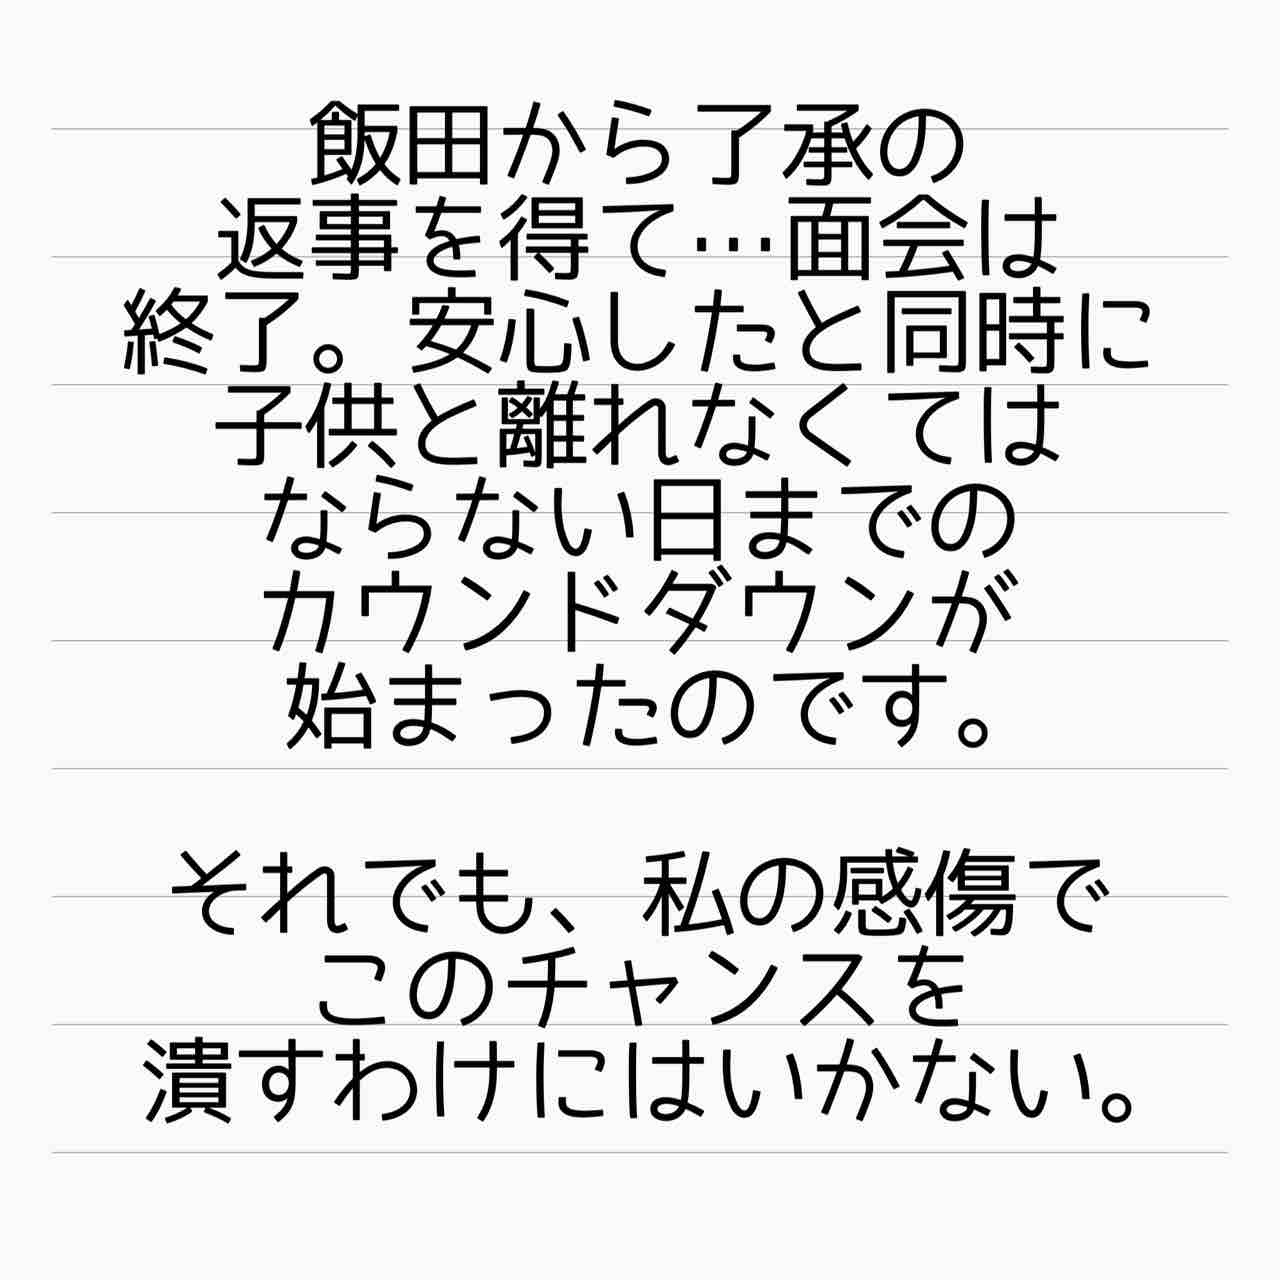 飯田から了承の
返事を得て…面会は
終了。安心したと同時に
子供と離れなくては
ならない日までの
カウンドダウンが
始まったのです。
それでも、私の感傷で
このチャンスを
潰すわけにはいかない。